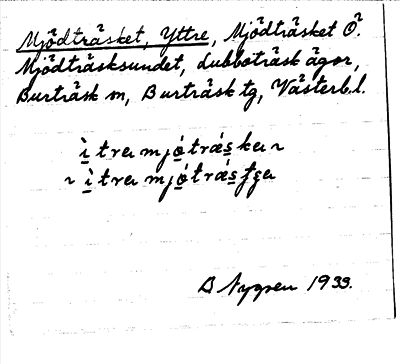 Mjödträsket, Yttre, Mjödträsket Ö.
Mjödträsksundet, Lubboträsk ägor,
Burträsk sn, Burträsk tg, Västerb.l.
ì tra mjó̱træ̀s̱ka ~
~ ì̱ tra mjó̱trǽs̱ʄʂa
B Nygren 1933.